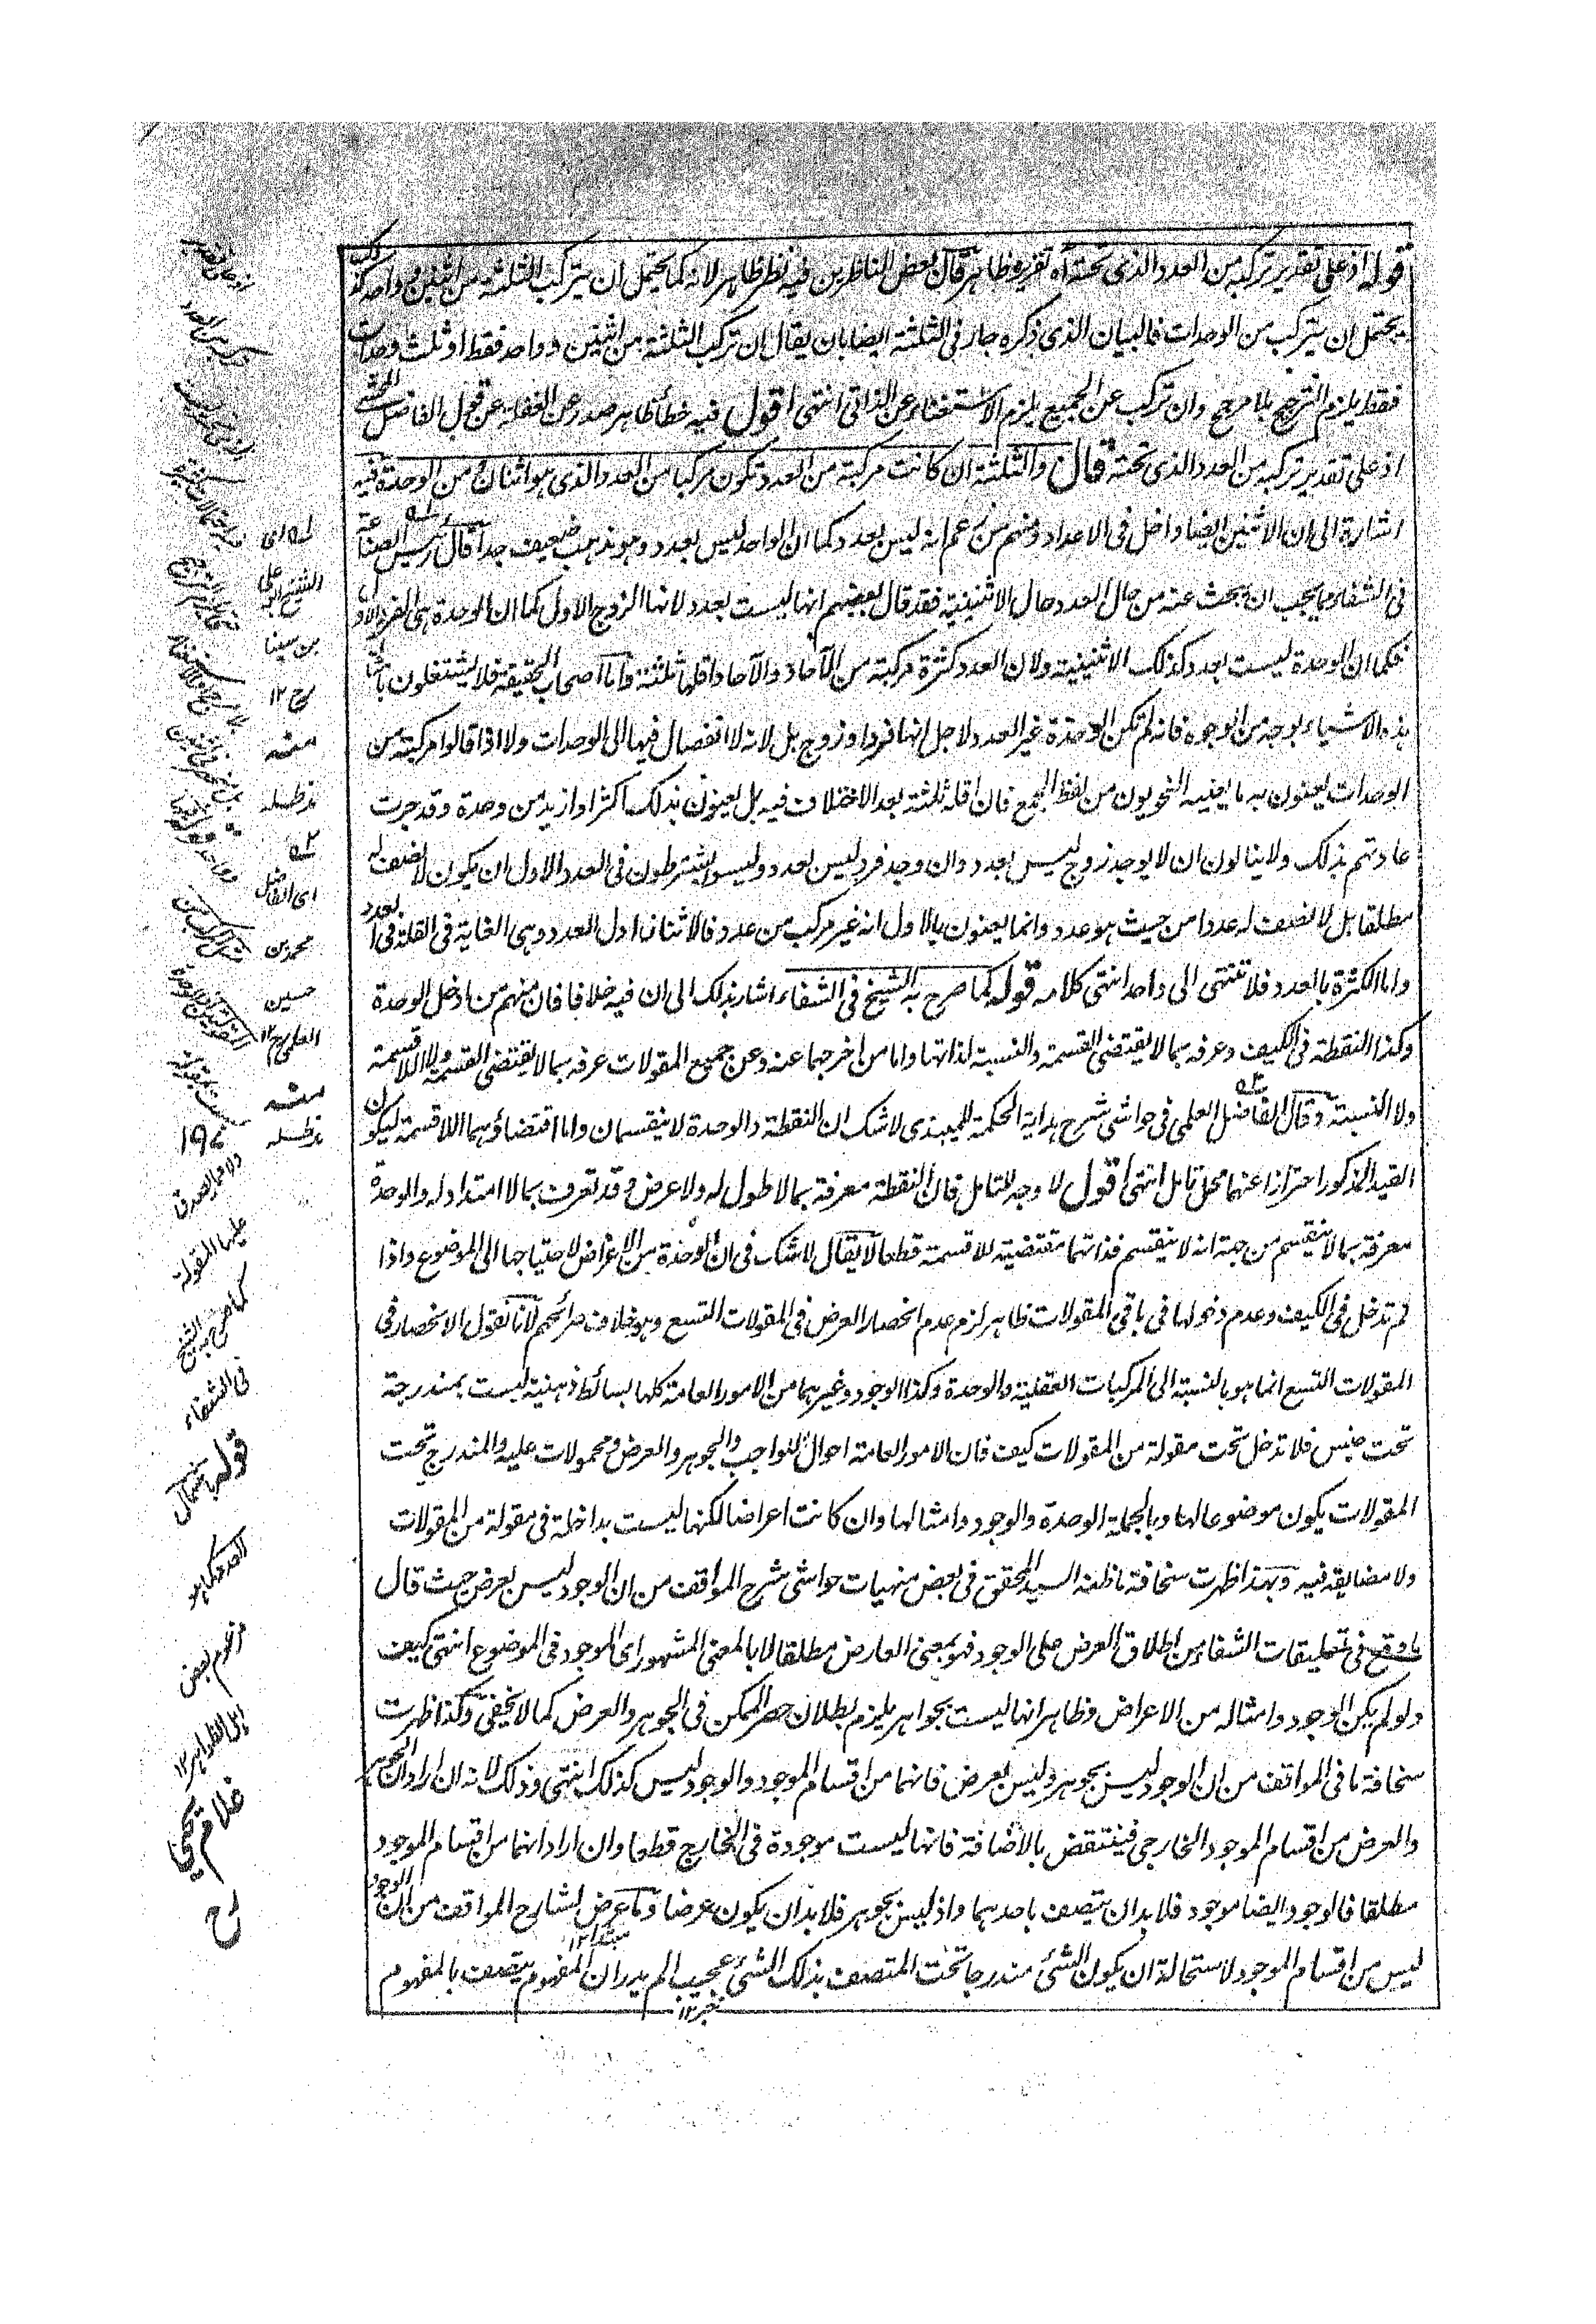 قوله اذ على تقدير تركبه من العدد الذى تحته آه تقريره ظاهر قال بعض الناظرين فيه نظر ظاهر لانه كما يحتمل ان يتركب الثلثة من اثنين وواحد كذلك
يحتمل ان يتركب من الوحدات فالبيان الذى ذكره جار فى الثلثة ايضا بان يقال ان تركب الثلثة من اثنين وواحد فقط او ثلث وحدات
فقط يلزم الترجيح بلا مرجح وان تركب عن الجميع يلزم الاستغناء عن الذاتى انتهى اقول فيه خطأ ظاهر صدر عن الغفلة عن قول الفاضل المحشى
اذ على تقدير تركبه من العدد الذى تحته قال والثلثة ان كانت مركبة من العدد تكون مركبا من العدد الذى هو اثنان ومن الوحدة فيه
اشارة الى ان الاثنين ايضا داخل فى الاعداد ومنهم من زعم انه ليس بعدد كما ان الواحد ليس بعدد وهو مذهب ضعيف جدا قال رئيس الصناعة
فى الشفاء ومما يجب ان يبحث عنه من حال العدد حال الاثنينية فقد قال بعضهم انها ليست بعدد لانها الزوج الاول كما ان الوحدة هى الفرد الاول
فكما ان الوحدة ليست بعدد كذلك الاثنينية ولان العدد كثرة مركبة من الآحاد والآحاد اقلها ثلثة واما اصحاب الحقيقة فلا يشتغلون بامثال
هذه الاشياء بوجه من الوجوه فانه لم تكن الوحدة غير العدد لاجل انها فرد او زوج بل لانه لا انفصال فيها الى الوحدات ولا اذا قالوا مركبة من
الوحدات يعنون به ما يعنيه النحويون من لفظ الجمع فان اقله ثلثة بعد الاختلاف فيه بل يعنون بذلك اكثر او ازيد من وحدة وقد جرت
عادتهم بذلك ولا يبالون ان لا يوجد زوج ليس بعدد وان وجد فرد ليس بعدد وليسوا يشترطون فى العدد الاول ان يكون لا نصف له
مطلقا بل لا نصف له عددا من حيث هو عدد وانما يعنون بالاول انه غير مركب من عدد فالاثنان اول العدد وهى الغاية فى القلة فى العدد
واما الكثرة بالعدد فلا تنتهى الى واحد انتهى كلامه قوله كما صرح به الشيخ فى الشفاء اشار بذلك الى ان فيه خلافا فان منهم من ادخل الوحدة
وكذا النقطة فى الكيف وعرفه بما لا يقتضى القسمة والنسبة لذاتها واما من اخرجهما عنه وعن جميع المقولات عرفه بما لا يقتضى القسمة ولا اللاقسمة
ولا النسبة وقال الفاضل العلمى فى حواشى شرح هداية الحكمة للميبذى لا شك ان النقطة والوحدة لا ينقسمان واما اقتضاؤهما اللاقسمة ليكون
القيد المذكور احترازا عنهما محل تامل انتهى اقول لا وجه للتامل فان النقطة معرفة بما لا طول له ولا عرض وقد تعرف بما لا امتداد له والوحدة
معرفة بما لا ينقسم من جهة انه لا ينقسم فذاتهما مقتضية للاقسمة قطعا لا يقال لا شك فى ان الوحدة من الاعراض لاحتياجها الى الموضوع واذا
لم تدخل فى الكيف وعدم دخولها فى باقى المقولات ظاهر لزم عدم انحصار العرض فى المقولات التسع وهو خلاف صرائحهم لانا نقول الانحصار فى
المقولات التسع انما هو بالنسبة الى المركبات العقلية والوحدة وكذا الوجود وغيرهما من الامور العامة كلها بسائط ذهنية ليست بمندرجة
تحت جنس فلا تدخل تحت مقولة من المقولات كيف فان الامور العامة احوال للواجب والجوهر والعرض ومحمولات عليه والمندرج تحت
المقولات يكون موضوعا لها وبالجملة الوحدة والوجود وامثالها وان كانت اعراضا لكنها ليست بداخلة فى مقولة من المقولات
ولا مضايقة فيه وبهذا ظهرت سخافة ما ظنه السيد المحقق فى بعض منهيات حواشى شرح المواقف من ان الوجود ليس بعرض حيث قال
ما وقع فى تعليقات الشفاء من اطلاق العرض على الوجود فهو بمعنى العارض مطلقا لا بالمعنى المشهور اى الموجود فى الموضوع انتهى كيف
ولو لم يكن الوجود وامثاله من الاعراض وظاهر انها ليست بجواهر يلزم بطلان حصر الممكن فى الجوهر والعرض كما لا يخفى وكذا ظهرت
سخافة ما فى المواقف من ان الوجود ليس بجوهر وليس بعرض فانهما من اقسام الموجود والوجود ليس كذلك انتهى وذلك لانه ان اراد ان الجوهر
والعرض من اقسام الموجود الخارجى فينتقض بالاضافة فانها ليست موجودة فى الخارج قطعا وان اراد انهما من اقسام الموجود
مطلقا فالوجود ايضا موجود فلا بد ان يتصف باحدهما واذ ليس بجوهر فلا بد ان يكون عرضا وما عرض لشارح المواقف من ان الوجود
مبتدا ١٢
ليس من اقسام الموجود لاستحالة ان يكون الشئ مندرجا تحت المتصف بذلك الشئ عجيب الم يدر ان المفهوم يتصف بالمفهوم
خبر ١٢
له اى
الشيخ ابو على
بن سينا
رح ١٢
منه
مد ظله
٢ه
اى الفاضل
محمد بن
حسين
العلمى رح ١٢
منه
مد ظله
١٩٢
ولا يصدق
عليها المقولة
كما صرح به الشيخ
فى الشفاء
قوله
كما هو
مزعوم بعض
اهل الظواهر ١٢
غلام يحيى
رح